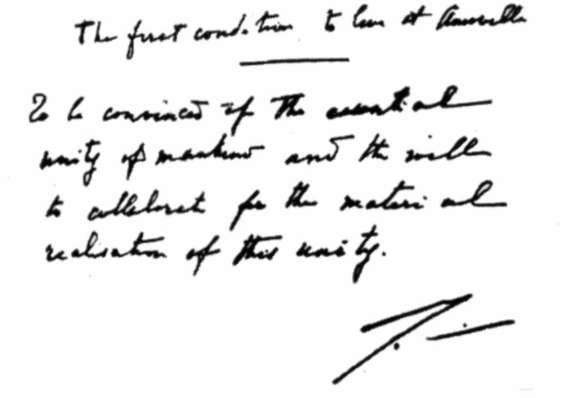 The first condition to live at Auroville
To be convinced of the essential
unity of mankind and the will
to collaborate for the material
realisation of this unity.